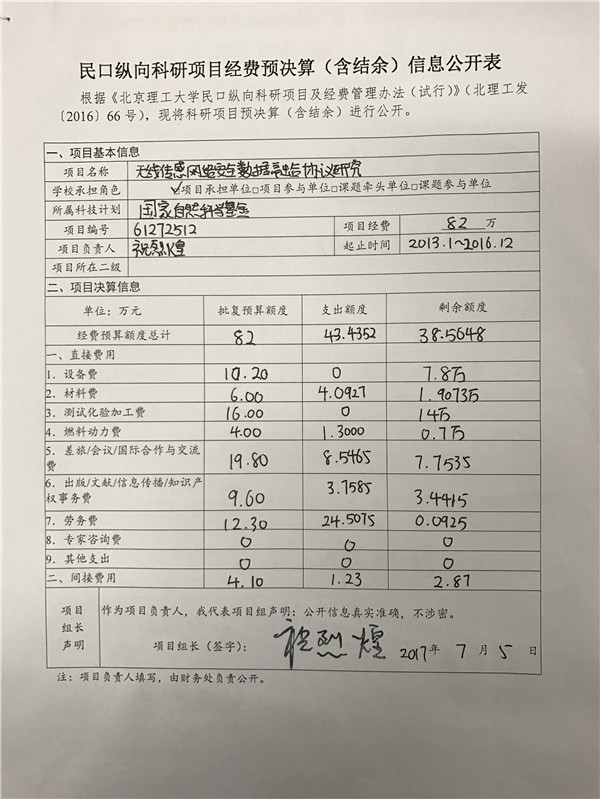 民口纵向科研项目经费预决算（含结余）信息公开表
根据《北京理工大学民口纵向科研项目及经费管理办法（试行）》（北理工发
〔2016〕66号），现将科研项目预决算（含结余）进行公开。
一、项目基本信息
项目名称 无线传感网络安全数据融合协议研究
学校承担角色 ✓项目承担单位□项目参与单位□课题牵头单位□课题参与单位
所属科技计划 国家自然科学基金
项目编号 61272512 项目经费 82 万
项目负责人 祝烈煌 起止时间 2013.1~2016.12
项目所在二级
二、项目决算信息
单位：万元 批复预算额度 支出额度 剩余额度
经费预算额度总计 82 43.4352 38.5648
一、直接费用
1. 设备费 10.20 0 7.8万
2. 材料费 6.00 4.0927 1.9073万
3. 测试化验加工费 16.00 0 14万
4. 燃料动力费 4.00 1.3000 0.7万
5. 差旅/会议/国际合作与交流
费 19.80 8.5465 7.7535
6. 出版/文献/信息传播/知识产
权事务费 9.60 3.7585 3.4415
7. 劳务费 12.30 24.5075 0.0925
8. 专家咨询费 0 0 0
9. 其他支出 0 0 0
二、间接费用 4.10 1.23 2.87
项目
组长
声明
作为项目负责人，我代表项目组声明：公开信息真实准确，不涉密。
项目组长（签字）： 祝烈煌 2017年 7 月 5 日
注：项目负责人填写，由财务处负责公开。